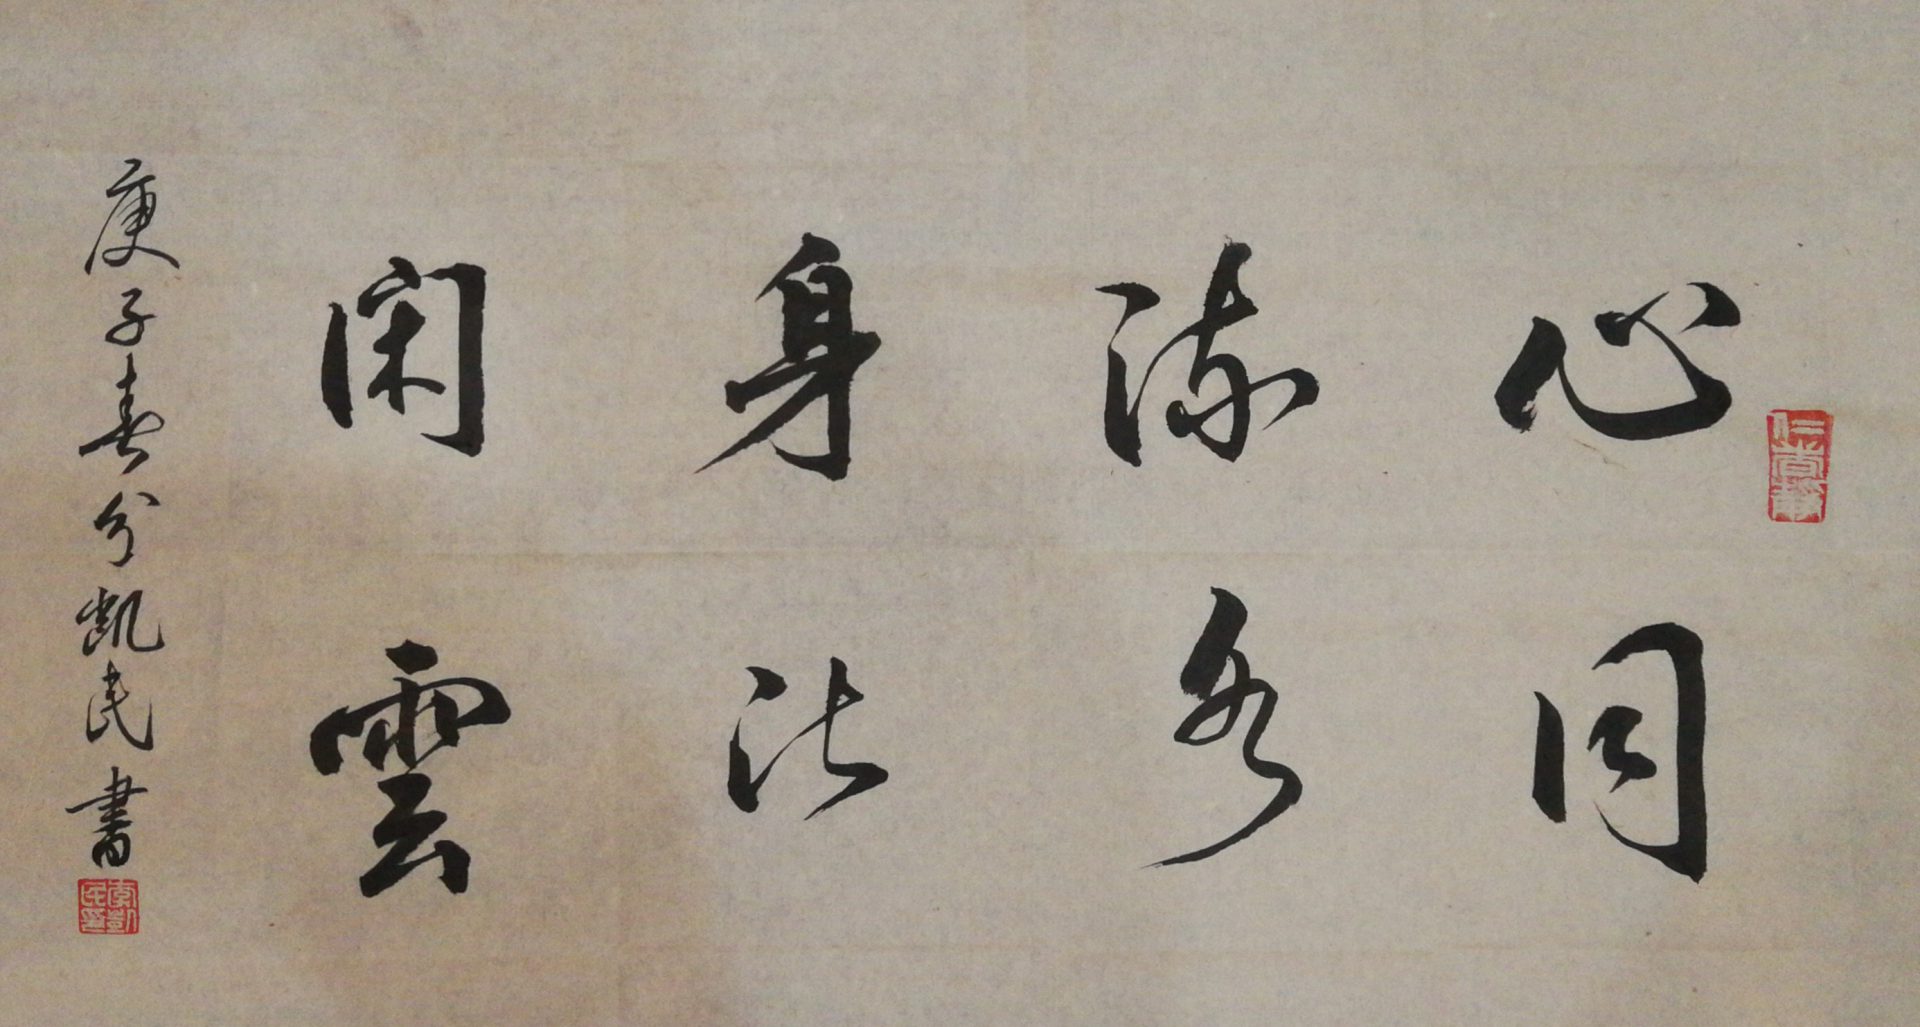 心同
流水
身比
闲雲
庚子春分凱民書